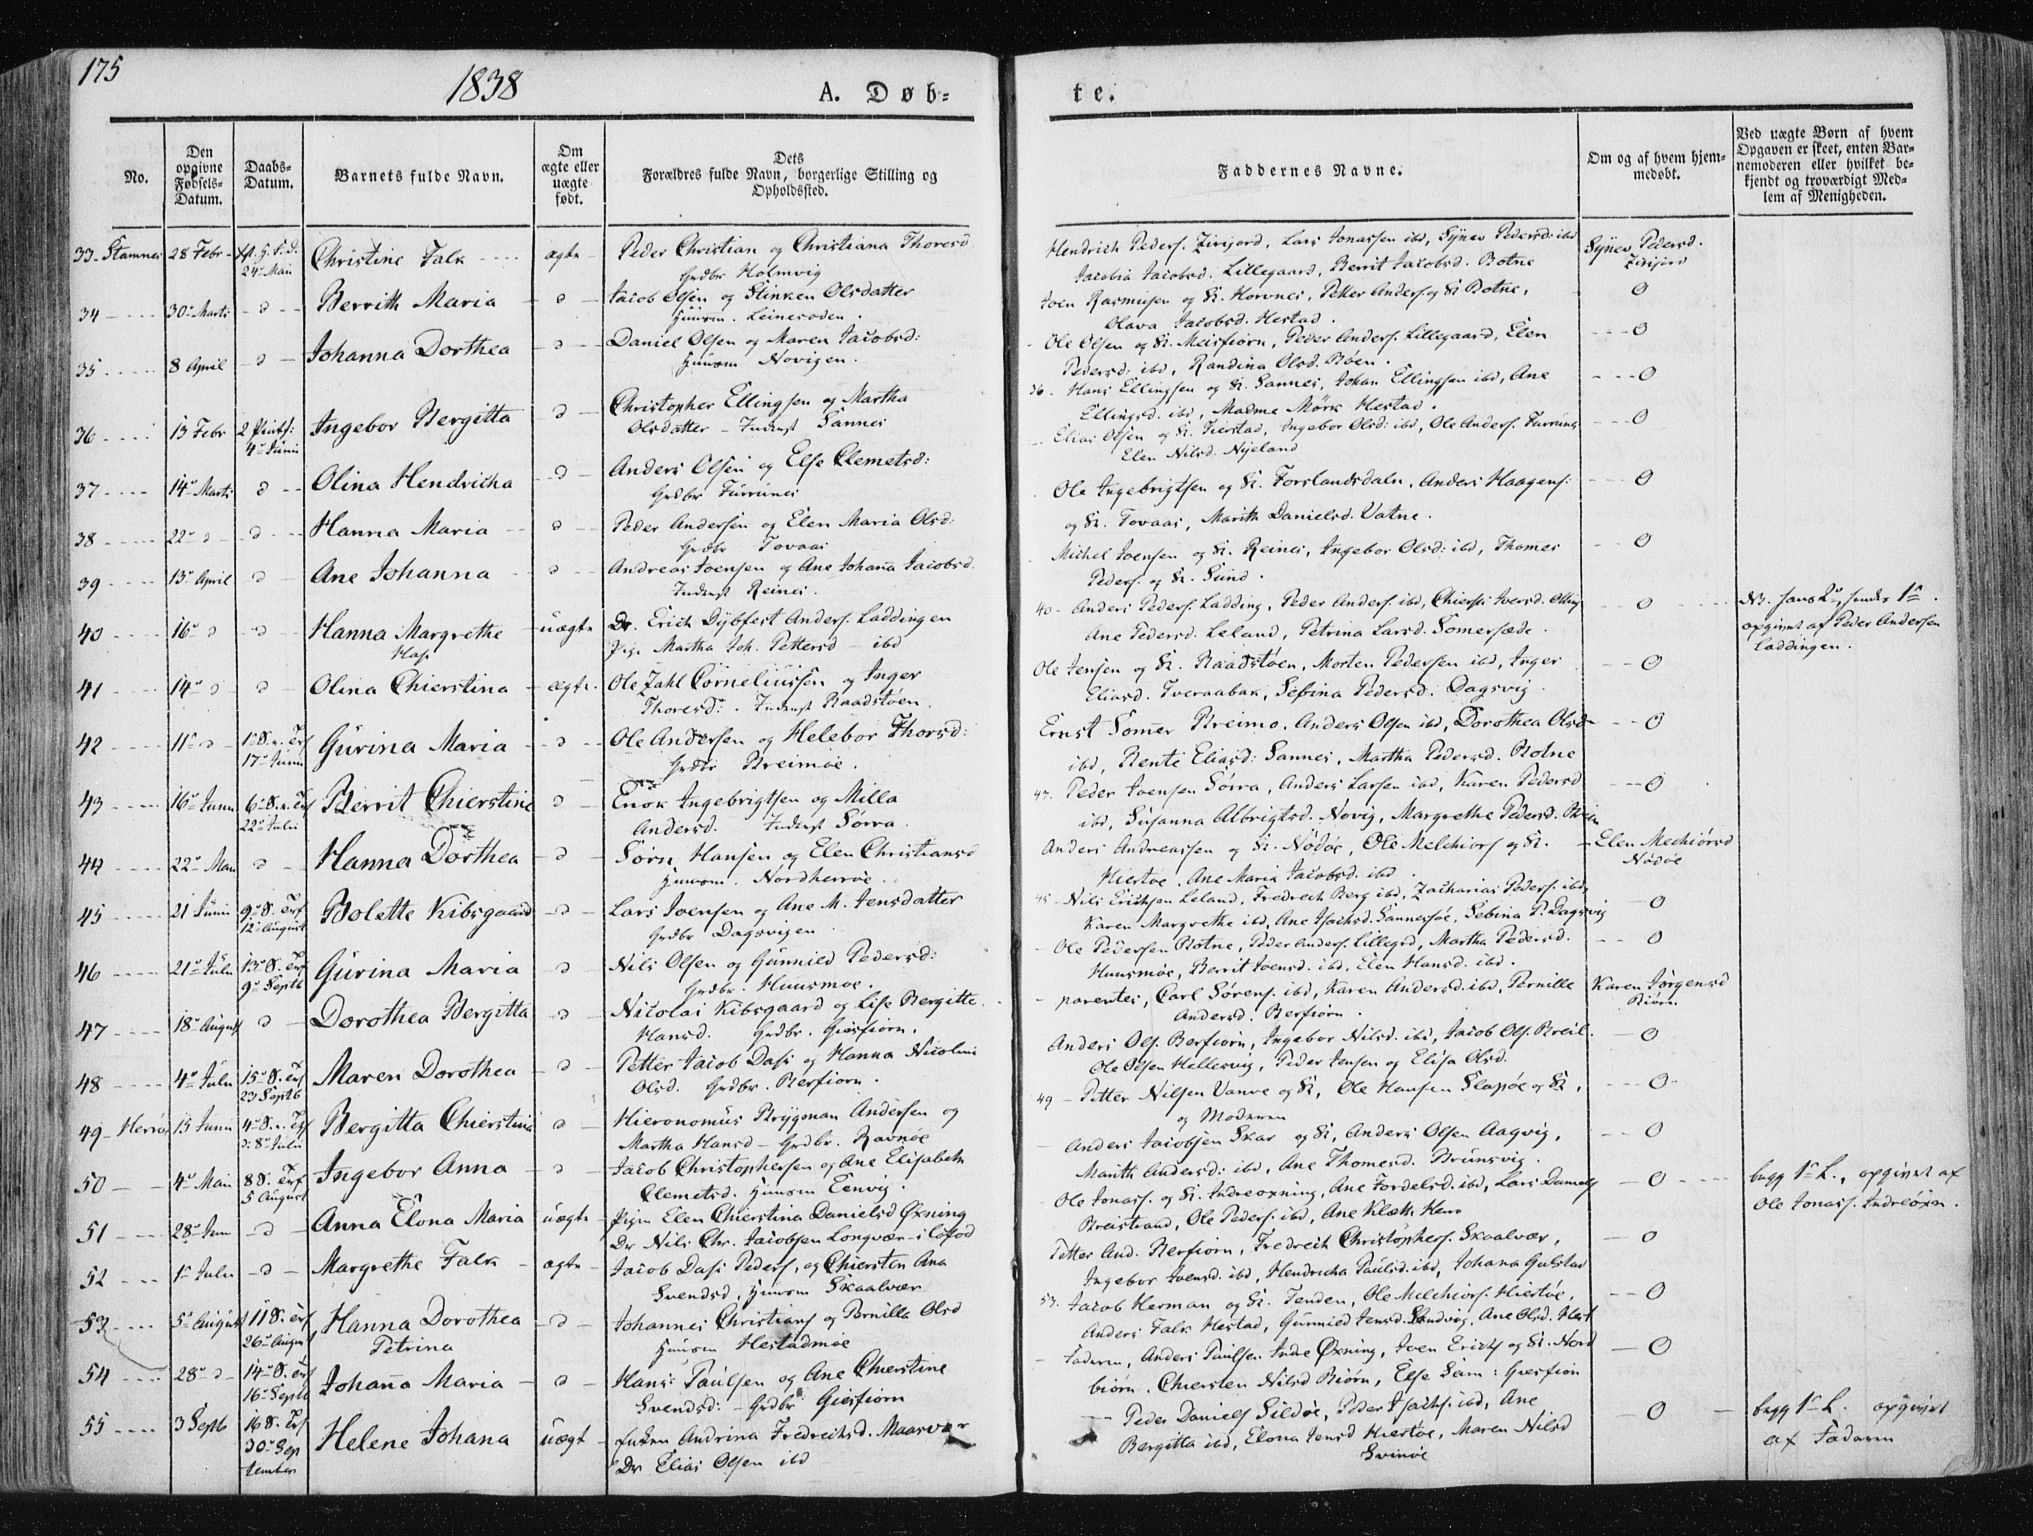 175
1838
A. Døb-
te.
No.
Den opgivne Fødsels-Datum.
Daabs-Datum.
Barnets fulde Navn.
Om ægte eller uægte født.
Dets Forældres fulde Navn, borgerlige Stilling og Opholdssted.
Faddernes Navne.
Om og af hvem hjem-medøbt.
Ved uægte Børn af hvem Opgaven er skeet, enten Bar-nemoderen eller hvilket be-kjendt og troværdigt Med-lem af Menigheden.
33 - Stamnes 28 Febr 24 Mai Christine Falk ægte Peder Christian og Christiana Thoresd
Holmvig
Hendrich Peders. Lars Jonassen ibd, Synev Pedersd: ibd
Jacobia Jacobsd. Lillegaard, Berrit Jacobsd. Botne
Synev Pedersd.
34 30 Marts d Berrith Maria d Jacob Olsen og Stinken Olsdatter
Huusm. Leinesodden.
Joen Rasmusen og K. Horvnes, Petter Anders. og K. Botne,
Olava Jacobsd. Hestad.
0
35 8 April d Johanna Dorthea d Daniel Olsen og Maren Jacobsd:
Huusm Novigen.
Ole Olsen og K. Meisfiorn, Peder Anders. Lillegaard, Elen
Pedersd: ibd, Randina Olsd. Böen.
0
36 13 Febr 2 Pintsd: 4 Junii Ingebor Bergitta d Christopher Ellingsen og Martha
Olsdatter - Inderst Sannes
36. Hans Ellingsen og K. Sannes, Johan Ellingsen ibd, Ane
Ellingsd. ibd, Madme Mörk Hestad.
0
37 14 Marts d Olina Hendricha d Anders Olsen og Else Clemetsd:
Grdbr Furrunes
Elias Olsen og K. Ingebor Olsd: ibd, Ole Anders. Furrunes
Elen Nilsd. Nyeland
0
38 22 d d Hanna Maria d Peder Andersen og Elen Maria Olsd:
Grdbr Tovaas
Ole Ingebrigtsen og K. Forslandsdaln, Anders Haagens:
og K. Tovaas, Marith Danielsd. Vatne.
0
39 13 April d Ane Johanna d Andreas Joensen og Ane Johana Jacobsd.
Inderst Reines.
Michel Joensen og K. Reines, Ingebor Olsd: ibd, Thomes
Peders. og K. Sund.
0
40 16 d d Hanna Margrethe uægte Dr. Erich Dybfest Anders. Laddingen
Pige Martha Joh. Pettersd - ibd
40 - Anders Peders. Ladding, Peder Anders. ibd,
Ane Pedersd. Leland, Petrina Larsd. Somersæde.
0
opgivet af Peder Andersen
Laddingen.
41 14 d d Olina Chierstina ægte Ole Zahl Corneliussen og Inger
Thoresd: Inderst Raadstöen
Ole Jensen og K. Raadstöen, Morten Pedersen ibd, Inger
Eliasd. Tveraabak, Sebina Pedersd: Dagsvig.
0
42 11 d 17 Junii Gurina Maria d Ole Andersen og Helebor Thorsd:
Grdbr Breimoe.
Ernst Somer Breimo, Anders Olsen ibd, Dorothea Olsd
ibd, Bente Eliasd: Sannes, Martha Pedersd. Botne
0
43 16 Junii 22 Julii Berrit Chierstine d Enok Ingebrigtsen og Milla
Andersd. Inderst Sörra.
43. Peder Joensen Sörra, Anders Larsen ibd, Karen Pedersd
ibd, Susanna Albrigtsd. Novig, Margrethe Pedersd.
0
44 22 Mai d Hanna Dorthea d Sörn Hansen og Elen Christiansd
Huusm. Nordherröe.
Anders Andreassen og K. Nödöe, Ole Melchiors og K.
Hiestöe, Ane Maria Jacobsd. ibd
Elen Mechiörsd
Nödöe
45 21 Junii 12 August Bolette Kibsgaard d Lars Joensen og Ane M. Jensdatter
Grdbr Dagsvigen
45 - Nils Erichsen Leland, Fredrech Berg ibd, Zacharias Peders. ibd,
Karen Margrethe ibd, Ane Isachsd. Sannesöe, Sebina P. Dagsvig
0
46 21 Julii 9 Septb Gurina Maria d Nils Olsen og Gunnild Pedersd:
Grdbr. Huusmoe.
Ole Pedersen Botne, Peder Anders. Lillegrd, Martha Pedersd.
Huusmoe, Berrit Joensd. ibd, Elen Hansd. ibd.
0
47 18 August d Dorothea Bergitta d Nicolai Kibsgaard og Lise Bergitte
Hansd. Grdbr. Giesfiorn.
parentes, Carl Sörens. ibd, Karen Andersd. ibd, Pernille
Andersd. Berfiorn.
Karen Jörgensd
Biörn
48 4 Julii 23 Septb Maren Dorothea d Petter Jacob Dass og Hanna Nicolina
Olsd. Grdbr. Berfiorn.
Anders Ols. Berfiorn, Ingebor Nilsd. ibd, Jacob Ols. Breil.
Ole Olsen Hellesvig, Peder Jensen og Elisa Olsd.
0
49 - Herröe 15 Junii 8 Julii Bergitta Chierstina d Hieronomus Brygman Andersen og
Martha Hansd - Grdbr. Ravnöe
49 - Petter Nilsen og K, Ole Hansen Slapöe og K,
og Moderen
0
50 4 Mai 8 S. Trf 5 August Ingebor Anna d Jacob Christophersen og Ane Elisabeth
Clemetsd. Huusm Eenvig.
Anders Jacobsen Skar og K, Anders Olsen Aagvig,
Marith Andersd: ibd, Ane Thomesd. Brunsvig.
0
51 28 Juni d Anna Elona Maria uægte Pigen Elen Chierstina Danielsd Öxning
Dr Nils Chr. Jacobsen Longvær i Lofod
Ole Jonass. og K. Indreöxning, Ane Tordelsd. ibd, Lars Daniels
Breistrand, Ole Peders. ibd, Ane Klæth Herö
0
begg 1 L., opgivet af
Ole Jonass. Indreöxn.
52 1 Julii d Margrethe Falk ægte Jacob Dass Peders. og Chiersten Ana
Svendsd, Huusm Skaalvær
Petter And. Berfiorn, Fredrech Christophers. Skaalvær,
Ingebor Joensd. ibd, Hendricha Paulsd. ibd, Johana Gulstad
0
53 5 August 11 S. Trf 26 August Hanna Dorothea
Petrina
d Johannes Christians og Pernilla Olsd
Huusm Hestadmoe
53. Jacob Herman og K. Tenden, Ole Melchiors. Hiestöe,
Anders Falk Hestad, Gunnild Jensd. Sandvig, Ane Olsd. Hest
0
54 28 d 14 S. Trf 16 Septb Johana Maria d Hans Paulsen og Ane Chierstine
Svendsd: - Grdbr Giesfiorn
Faderen, Anders Paulsen Indre Öxning, Iven Erichs og K. Nord
biörn. Chiersten Nilsd Biörn, Else Sam: Giesfion
0
55 3 Septb 16 S. Trf 30 Sep tember Helene Johana uægt Enken Andrina Fredrechsd. Maasvær
Dr Elias Olsen ibd
Peder Daniels Sildöe, Peder Isachs. ibd, Ane
Bergitta ibd, Elona Jensd Hiestöe, Maren Nilsd
Svinöe
0
begg 1 L. opgivet
af Faderen